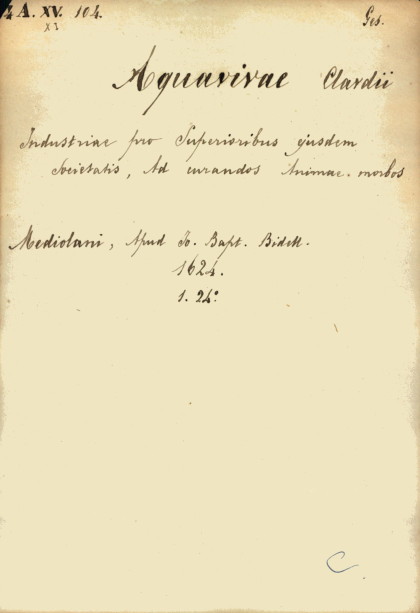 4 A. XV. 104. Ges.
XI
Aquavivae Clavdii
Industriae pro Superioribus ejusdem
Societatis, Ad curandos Animae morbos
Mediolani, Apud Io. Bapt. Bidell.
1624.
1. 24°
C